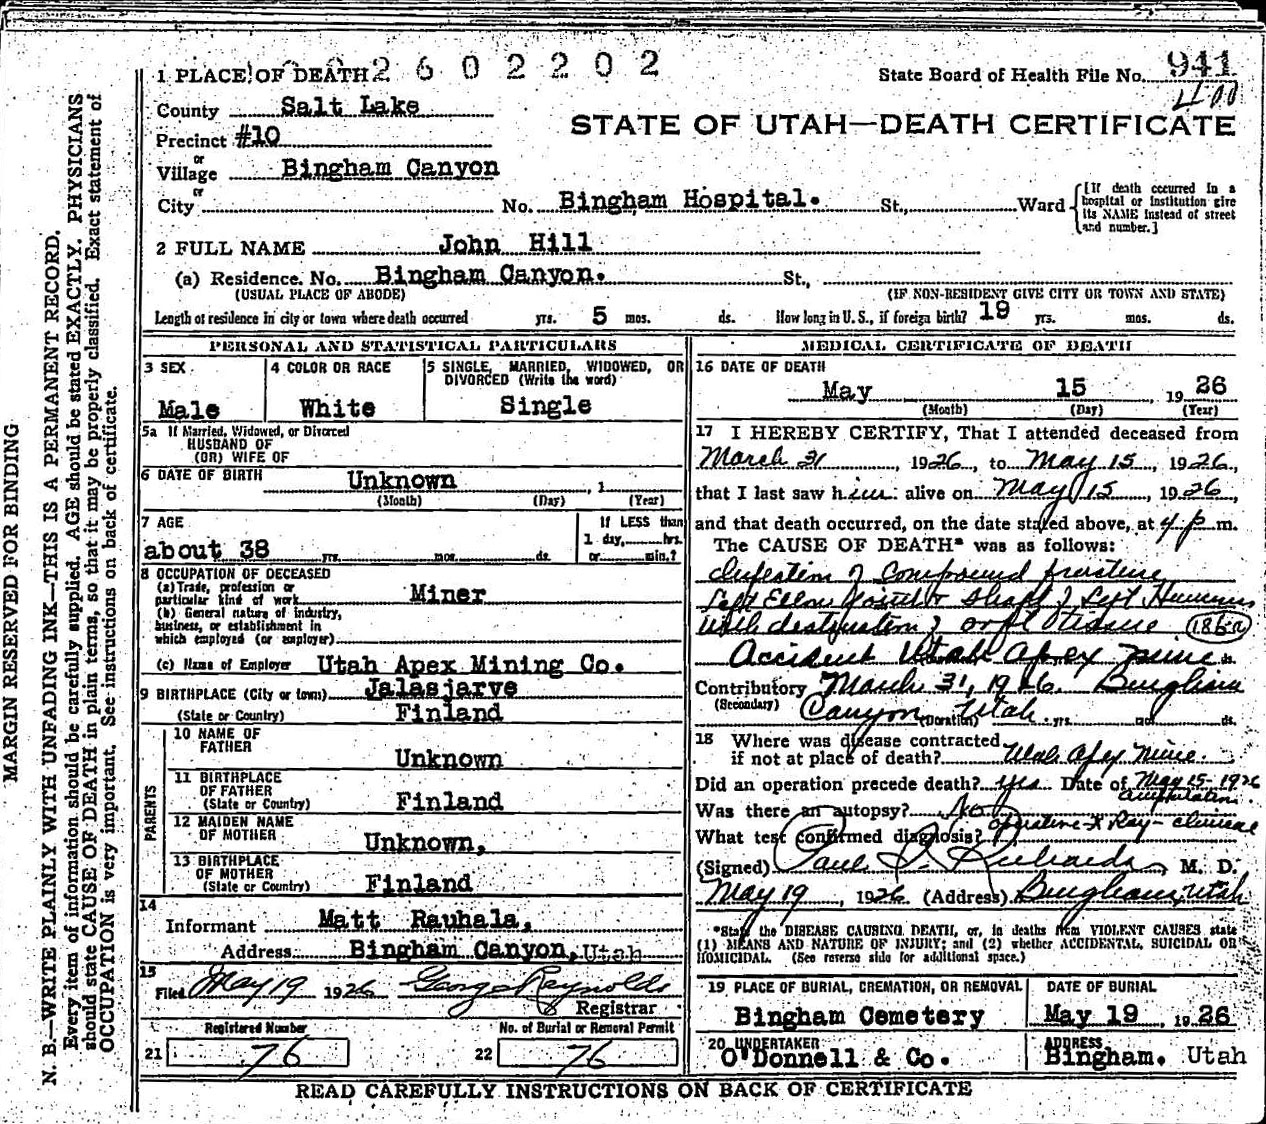 2602202
1 PLACE OF DEATH
State Board of Health File No. 941
400
County Salt Lake
STATE OF UTAH—DEATH CERTIFICATE
Precinct #10
or
Village Bingham Canyon
or
City No. Bingham Hospital. St., Ward
[If death occurred in a hospital or institution give its NAME instead of street and number.]
2 FULL NAME John Hill
(a) Residence. No. Bingham Canyon. St.,
(USUAL PLACE OF ABODE) (IF NON-RESIDENT GIVE CITY OR TOWN AND STATE)
Length of residence in city or town where death occurred yrs. 5 mos. ds. How long in U. S., if foreign birth? 19 yrs. mos. ds.
PERSONAL AND STATISTICAL PARTICULARS
3 SEX Male
4 COLOR OR RACE White
5 SINGLE, MARRIED, WIDOWED, OR
DIVORCED (Write the word)
Single
5a If Married, Widowed, or Divorced
HUSBAND OF
(OR) WIFE OF
6 DATE OF BIRTH Unknown , 1
(Month) (Day) (Year)
7 AGE
about 38 yrs. mos. ds.
If LESS than
1 day, hrs.
or min.?
8 OCCUPATION OF DECEASED
(a) Trade, profession or
particular kind of work Miner
(b) General nature of industry,
business, or establishment in
which employed (or employer)
(c) Name of Employer Utah Apex Mining Co.
9 BIRTHPLACE (City or town) Jalasjarve
(State or Country) Finland
PARENTS
10 NAME OF
FATHER Unknown
11 BIRTHPLACE
OF FATHER
(State or Country) Finland
12 MAIDEN NAME
OF MOTHER Unknown,
13 BIRTHPLACE
OF MOTHER
(State or Country) Finland
14
Informant Matt Rauhala,
Address Bingham Canyon, Utah
15
Filed May 19 1926 George Reynolds
Registrar
Registered Number No. of Burial or Removal Permit
21 76 22 76
MEDICAL CERTIFICATE OF DEATH
16 DATE OF DEATH
May 15 , 19 26
(Month) (Day) (Year)
17 I HEREBY CERTIFY, That I attended deceased from
March 31 , 1926, to May 15, 1926,
that I last saw him alive on May 15, 1926,
and that death occurred, on the date stated above, at 4 p m.
The CAUSE OF DEATH* was as follows:
Infection of Compound fracture
Left Elbow Joint & Shaft of Left Humerus
with destruction of tissue 186a
Accident Utah Apex Mine ds.
Contributory March 31, 1926. Bingham
(Secondary) Canyon Utah. (Duration) yrs. mos. ds.
18 Where was disease contracted
if not at place of death? Utah Apex Mine.
Did an operation precede death? yes Date of May 15-1926
amputation.
Was there an autopsy? No
What test confirmed diagnosis? operative-X Ray-clinical
(Signed) Paul S. Richards, M. D.
May 19 , 1926 (Address) Bingham, Utah
*State the DISEASE CAUSING DEATH, or, in deaths from VIOLENT CAUSES state
(1) MEANS AND NATURE OF INJURY; and (2) whether ACCIDENTAL, SUICIDAL OR
HOMICIDAL. (See reverse side for additional space.)
19 PLACE OF BURIAL, CREMATION, OR REMOVAL
Bingham Cemetery
DATE OF BURIAL
May 19 , 1926
20 UNDERTAKER
O'Donnell & Co.
ADDRESS
Bingham. Utah
READ CAREFULLY INSTRUCTIONS ON BACK OF CERTIFICATE
MARGIN RESERVED FOR BINDING
N. B.—WRITE PLAINLY WITH UNFADING INK—THIS IS A PERMANENT RECORD.
Every item of information should be carefully supplied. AGE should be stated EXACTLY. PHYSICIANS
should state CAUSE OF DEATH in plain terms, so that it may be properly classified. Exact statement of
OCCUPATION is very important. See instructions on back of certificate.